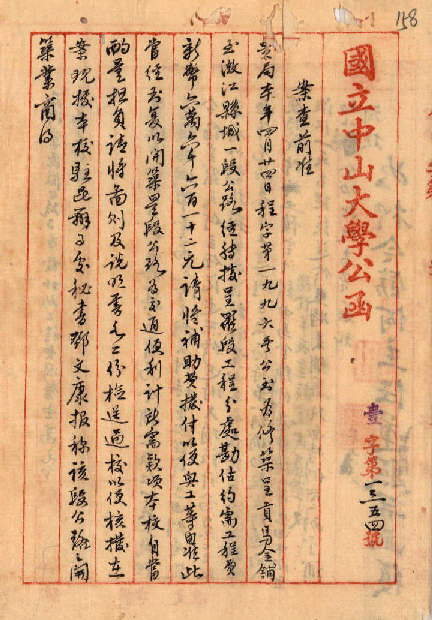 國立中山大學公函
壹字第一三五四號
案查前准
貴局本年四月廿四日程字第一九九六號公函為修築呈貢馬金鋪
至澂江縣城一段公路經轉據呈羅段工程分處勘估約需工程費
新幣六萬六千六百一十三元請將補助費撥付以便興工等由准此
當經函复以開築呈段公路為交通便利計所需款項本校自當
酌量担負請將圖則及說明書各二份檢送過校以便核撥在
案現據本校駐昆辦事處秘書鄧文康报称該段公路之開
築業商得
158